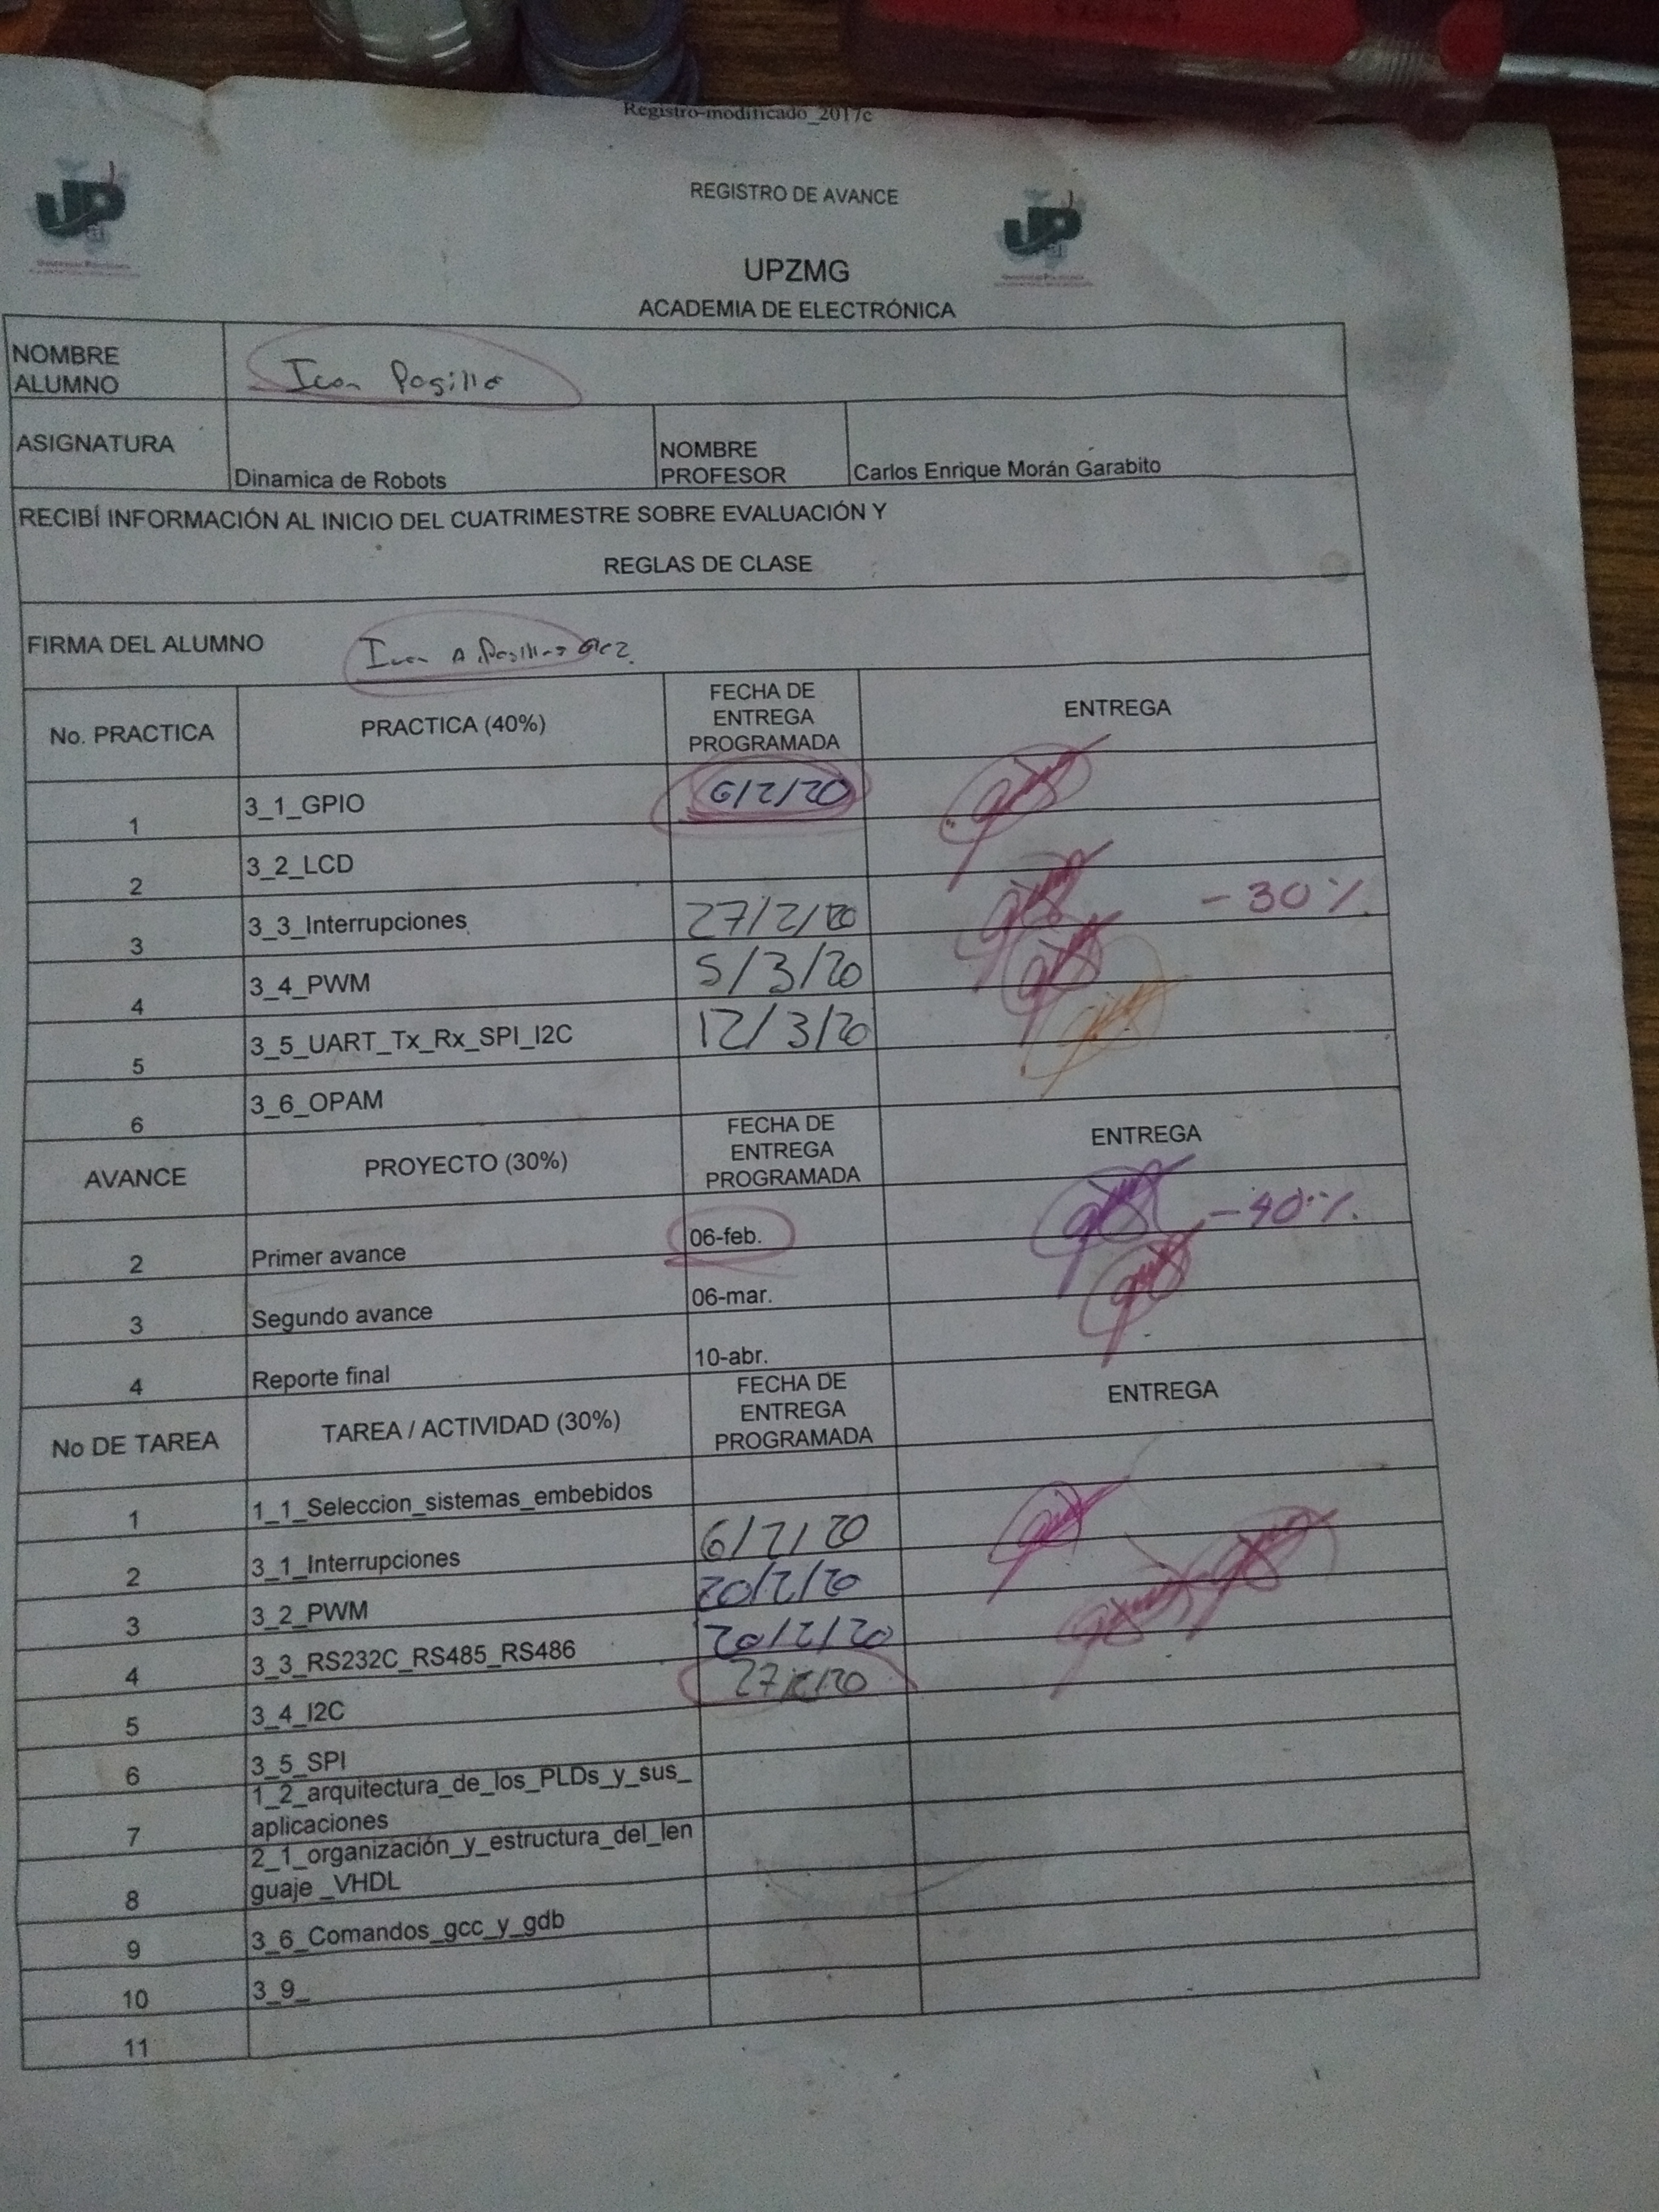 Registro-modificado_2017c
REGISTRO DE AVANCE
UPZMG
ACADEMIA DE ELECTRÓNICA
NOMBRE ALUMNO
ASIGNATURA Dinamica de Robots NOMBRE PROFESOR Carlos Enrique Morán Garabito
RECIBÍ INFORMACIÓN AL INICIO DEL CUATRIMESTRE SOBRE EVALUACIÓN Y
REGLAS DE CLASE
FIRMA DEL ALUMNO
No. PRACTICA PRACTICA (40%) FECHA DE ENTREGA PROGRAMADA ENTREGA
1 3_1_GPIO 6/2/20
2 3_2_LCD
3 3_3_Interrupciones 27/2/20 -30%
4 3_4_PWM 5/3/20
5 3_5_UART_Tx_Rx_SPI_I2C 12/3/20
6 3_6_OPAM
AVANCE PROYECTO (30%) FECHA DE ENTREGA PROGRAMADA ENTREGA
2 Primer avance 06-feb. -40%
3 Segundo avance 06-mar.
4 Reporte final 10-abr.
No DE TAREA TAREA / ACTIVIDAD (30%) FECHA DE ENTREGA PROGRAMADA ENTREGA
1 1_1_Seleccion_sistemas_embebidos
2 3_1_Interrupciones 6/2/20
3 3_2_PWM 20/2/20
4 3_3_RS232C_RS485_RS486 20/2/20
5 3_4_I2C 27/2/20
6 3_5_SPI
7 1_2_arquitectura_de_los_PLDs_y_sus_
aplicaciones
8 2_1_organización_y_estructura_del_len
guaje _VHDL
9 3_6_Comandos_gcc_y_gdb
10 3_9_
11